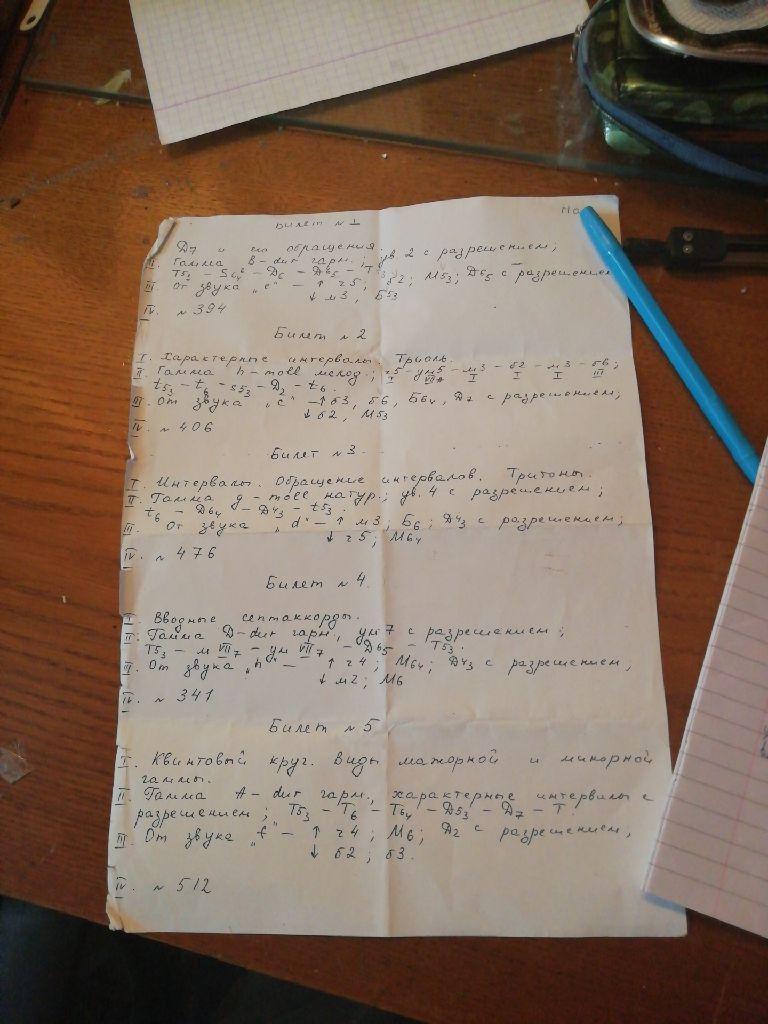 Билет № I
Д7 и его обращения.
II. Гамма B-dur гарм.; ув 2 с разрешением;
T53 – S64 – Д6 – Д65 – T
III. От звука „e" – ↑ ч5; б2; М53; Д65 с разрешением
↓ м3, Б53
IV. № 394
Билет № 2
I. Характерные интервалы. Триоль.
II. Гамма h-moll мелод.; ч5 – ум5 – м3 – б2 – м3 – б6;
I VII I I I III
t53 – t6 – s53 – Д2 – t6.
III. От звука „c" – ↑ б3, б6, Б64, Д7 с разрешением;
↓ б2, М53
IV. № 406
Билет № 3
I. Интервалы. Обращение интервалов. Тритоны.
II. Гамма g-moll натур.; ув. 4 с разрешением;
t6 – Д64 – Д43 – t53.
III. От звука „d" – ↑ м3, Б6; Д43 с разрешением;
↓ ч5; М64
IV. № 476
Билет № 4.
I. Вводные септаккорды.
II. Гамма D-dur гарм., ум 7 с разрешением;
T53 – м VII7 – ум VII7 – Д65 – T53.
III. От звука „h" – ↑ ч4; М64; Д43 с разрешением,
↓ м2; М6
IV. № 341
Билет № 5
I. Квинтовый круг. Виды мажорной и минорной
гаммы.
II. Гамма A-dur гарм., характерные интервалы с
разрешением; T53 – T6 – T64 – Д53 – Д7 – T.
III. От звука „f" – ↑ ч4; М6; Д2 с разрешением,
↓ б2; б3.
IV. № 512